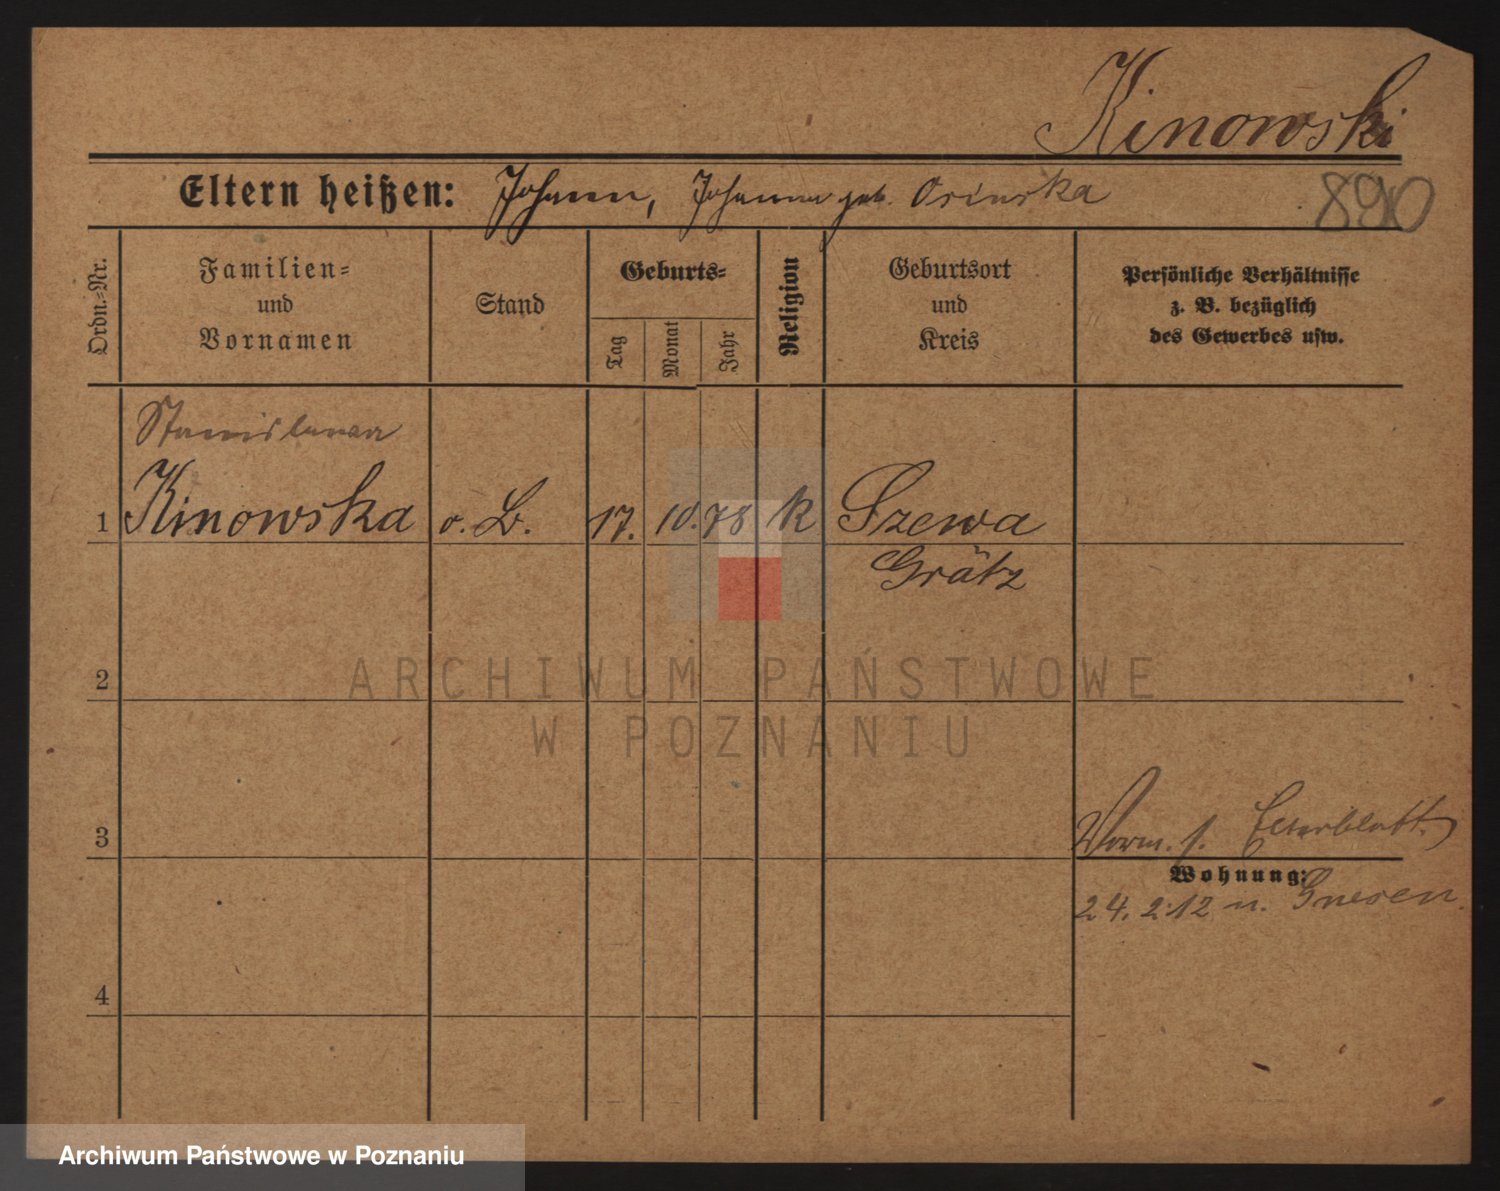 Kinowski
Eltern heißen: Johann, Johanna geb. Osinska
890
Ordn.-Nr.
Familien-
und
Vornamen
Stand
Geburts-
Tag
Monat
Jahr
Religion
Geburtsort
und
Kreis
Persönliche Verhältnisse
z. B. bezüglich
des Gewerbes usw.
Stanislawa
1 Kinowska o. B. 17. 10. 78 k Szewa
Grätz
2
3
Vorm. s. Elternblatt
Wohnung:
24. 2. 12 n. Gnesen
4
ARCHIWUM PAŃSTWOWE
W POZNANIU
Archiwum Państwowe w Poznaniu